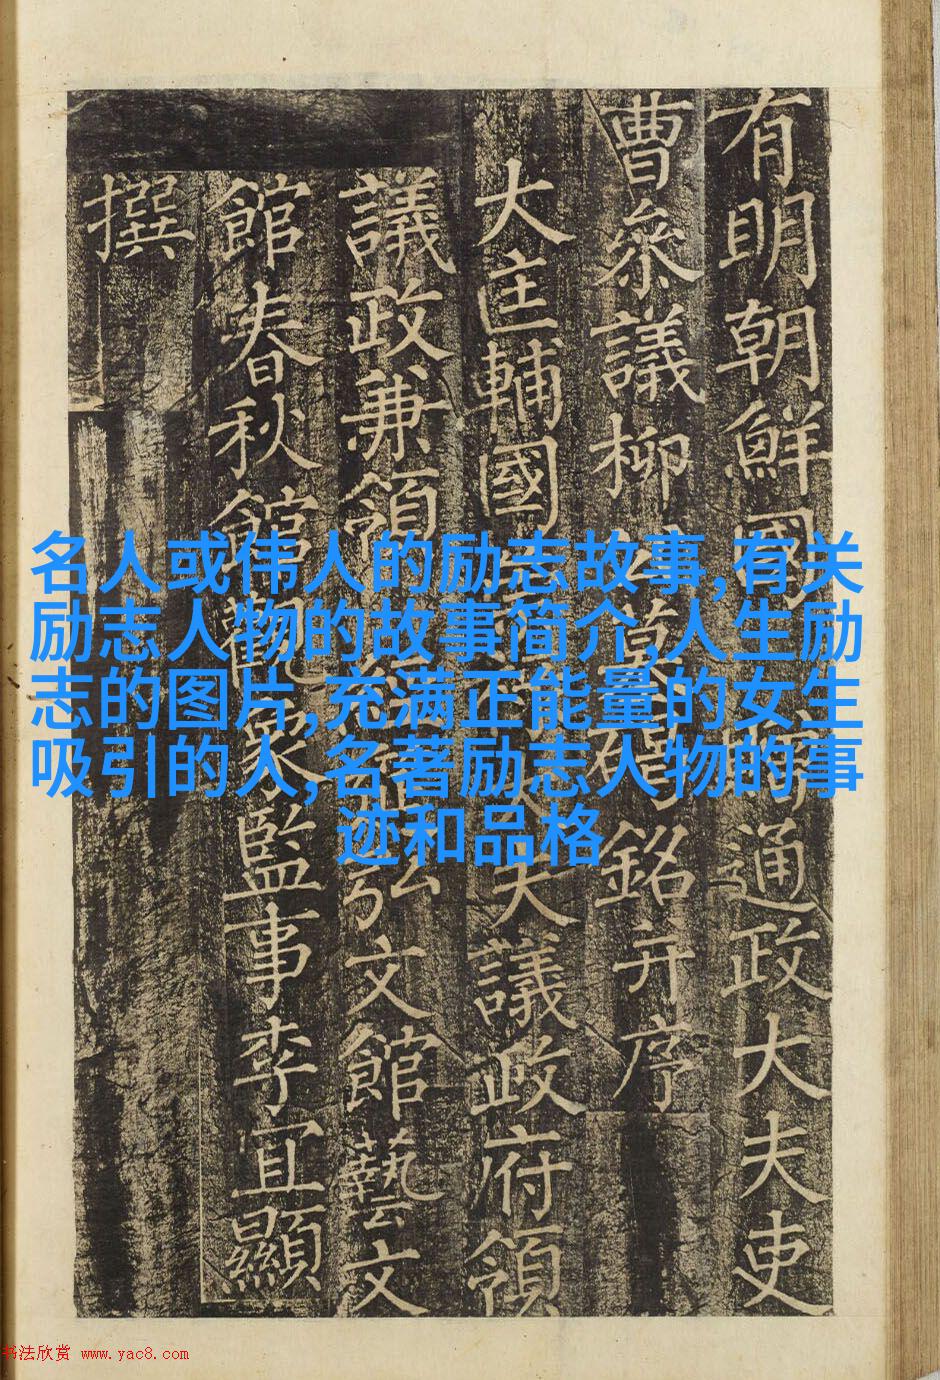 有明朝鮮國通政大夫吏
曹叅議柳公墓碣銘并序
大匡輔國崇祿大夫議政府領
議政兼領經筵弘文館藝文
館春秋館觀象監事李宜顯
撰
名人或伟人的励志故事,有关
励志人物的故事简介,人生励
志的图片,充满正能量的女生
吸引的人,名著励志人物的事
迹和品格
书法欣赏 www.yac8.com